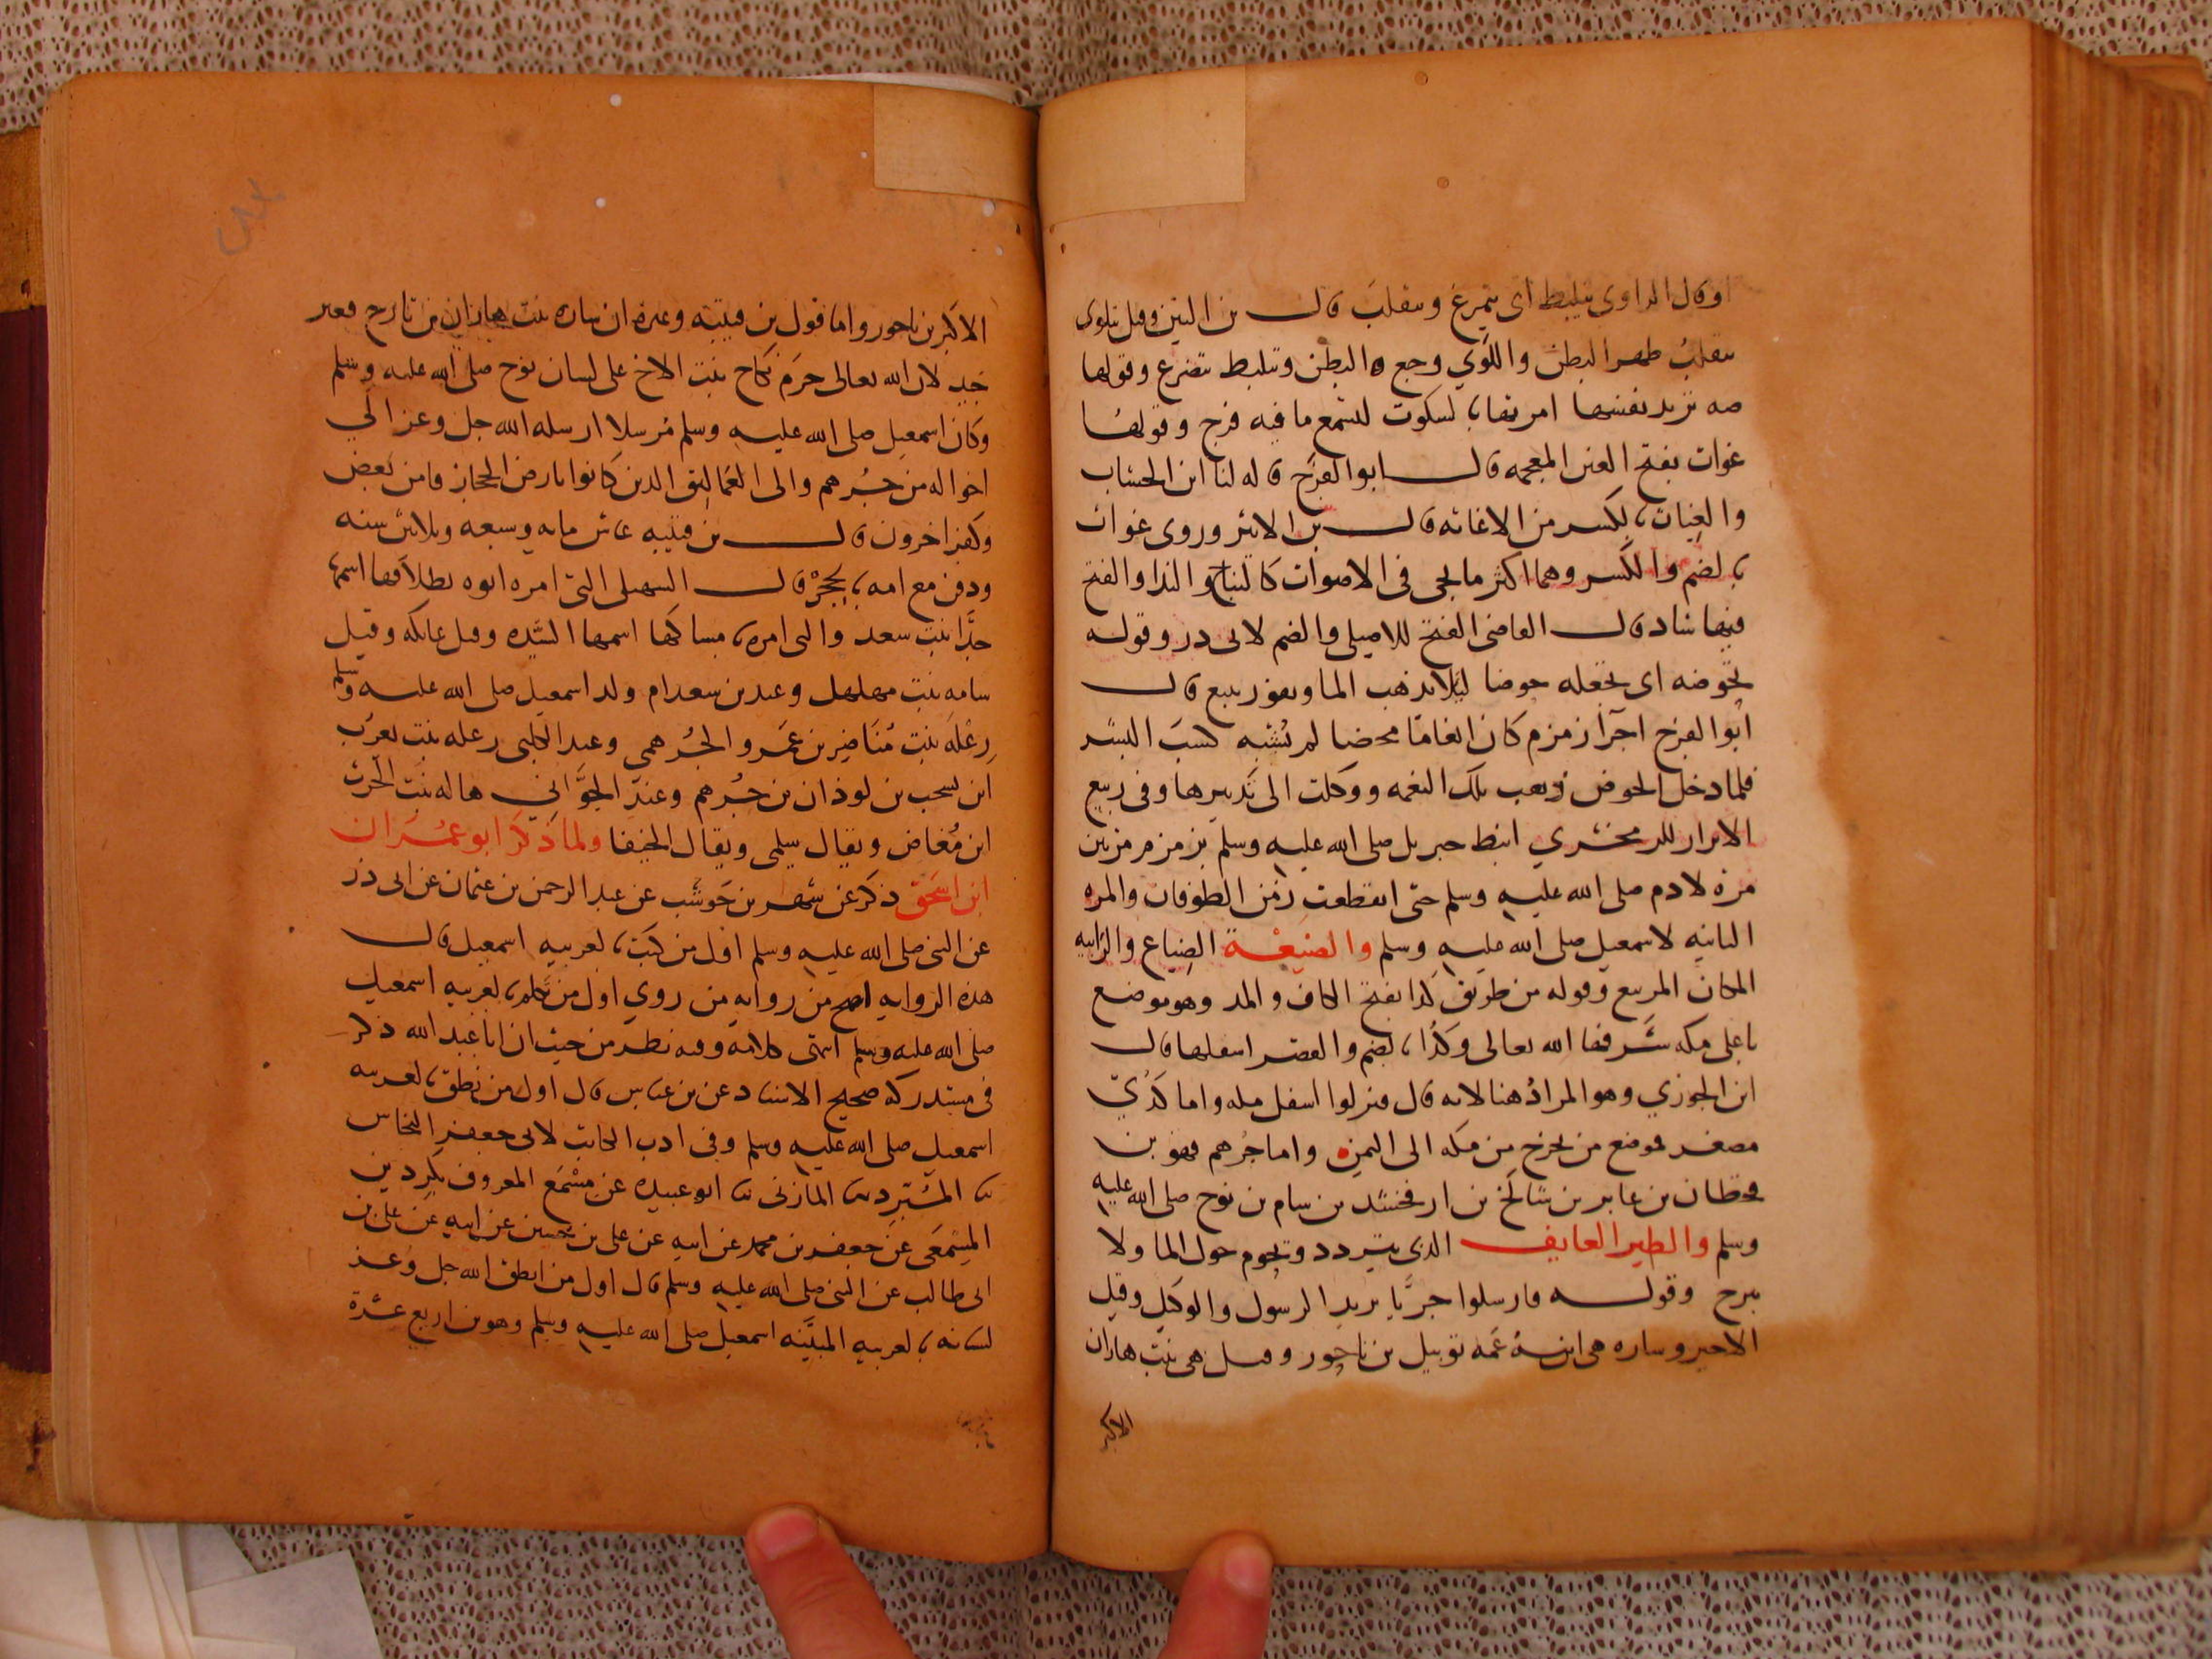 او قال الداودى يتلبط اى يتمرغ ويتقلب قال بن التين وقيل يتلوى
يتقلب ظهرا لبطن واللوَي وجع البطن وتلبط تضرع وقولها
صه تريد نفسها امرتها بالسكوت لتسمع ما فيه فرج وقولها
غواث بفتح الغين المعجمه قال ابوالفرج قاله لنا ابن الخشاب
والغياث بالكسر من الاغاثه قال بن الاثير وروى غواث
بالضم والكسر وهما اكثر ما يجى فى الاصوات كالنباح والندا والفتح
فيها شاذ قال القاضى الفتح للاصيلى والضم لابى ذر وقوله
تحوضه اى تجعله حوضا ليلا يذهب الما ويفور ينبع قال
ابوا الفرج اجرآ زمزم كان انعاما محضا لم يشبه كسبَ البشر
فلما دخل الحوض ذهب تلك النعمه ووكلت الى تدبيرها وفى ربيع
الابرار للزمخشري انبط جبريل صلى الله عليه وسلم بير زمزم مرتين
مرة لادم صلى الله عليه وسلم حتى انقطعت زمن الطوفان والمره
الثانيه لاسمعيل صلى الله عليه وسلم والضيعْة الضياع والرابيه
المكان المرتفع وقوله من طريق كدا بفتح الكاف والمد وهو موضع
باعلى مكه شرفها الله تعالى وكُدا بالضم والقصر اسفلها قال
ابن الجوزي وهو المرادُ هنا لانه قال فنزلوا اسفل مكه واما كُدَيّ
مصغر فموضع من يخرج من مكه الى اليمن واما جُرهم فهو بن
قحطان بن عابر بن شالَخ بن ارفخشد بن سام بن نوح صلى الله عليه
وسلم والطير العايف الذى يتردد ويحوم حول الما ولا
يبرح وقوله فارسلوا جريَّا يريد الرسول والوكيل وقيل
الاجير وساره هى ابنة عَمه توبيل بن ناحور وقيل هى بنت هاران
الاكبر
الاكبر بن ناحور واما قول بن قتيبه وغيره ان ساره بنت هاران بن تارح فغير
جيد لان الله تعالى حرَم نكاح بنت الاخ على لسان نوح صلى الله عليه وسلم
وكان اسمعيل صلى الله عليه وسلم مُرسلا ارسله الله جل وعز الي
اخواله من جُرهم والى العَماليق الذين كانوا بارض الحجاز فامن بعض
وكفر اخرون قال بن قتيبه عاش مايه وسبعه وثلاثين سنه
ودفن مع امه بالحِجْر قال السهيلى التى امره ابوه بطلاقها اسمها
جدَّا بنت سعد والتى امره بامساكها اسمها السَيده وقيل عاتكه وقيل
سامه بنت مهلهل وعند بن سعد ام ولد اسمعيل صلى الله عليه وسلم
رِعْلَه بنت مُنَاضير بن عَمرو الجُرهمى وعند الكلبى رعله بنت يعرُب
ابن يشجب بن لوذان بن جُرهم وعند الجوَّانيّ هاله بنت الحَرث
ابن مُضاض ويقال سلمى ويقال الحيفا ولما ذكَر ابو عمْران
ابن اسحَق ذكر عن شهر بن حَوشَب عن عبد الرحمن بن عثمان عن ابى ذر
عن النبى صلى الله عليه وسلم اوَّل من كتب بالعربيه اسمعيل قال
هذه الروايه اصح من روايه من روي اول من تكلم بالعربيه اسمعيل
صلى الله عليه وسلم انتهى كلامه وفيه نظر من حيث ان ابا عَبد الله ذكر
فى مستدركه صحيح الاسناد عن بن عباس قال اول من نطق بالعربيه
اسمعيل صلى الله عليه وسلم وفى ادب الكاتب لابى جعفر النحاس
ثنا المُبَرِد ثنا المازنى ثنا ابو عبيده عن مِسْمَع المعروف بكردين
المِسْمَعى عن جعفر بن محمد عن ابيه عن على بن حسين عن ابيه عن على بن
ابى طالب عن النبى صلى الله عليه وسلم قال اول من انطق الله جل وعز
لسانه بالعربيه المبيَّنه اسمعيل صلى الله عليه وسلم وهو بن اربع عشرة